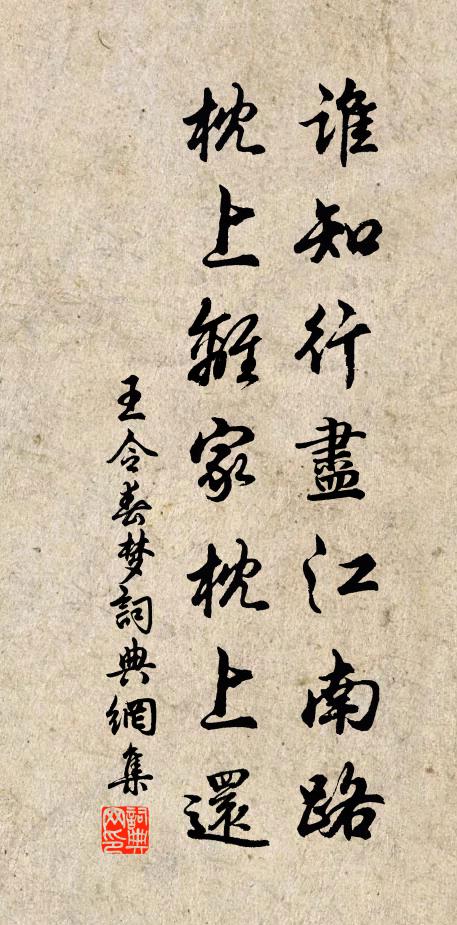 誰知行盡江南路
枕上離家枕上還
王令春梦詞典網集
詞典网印